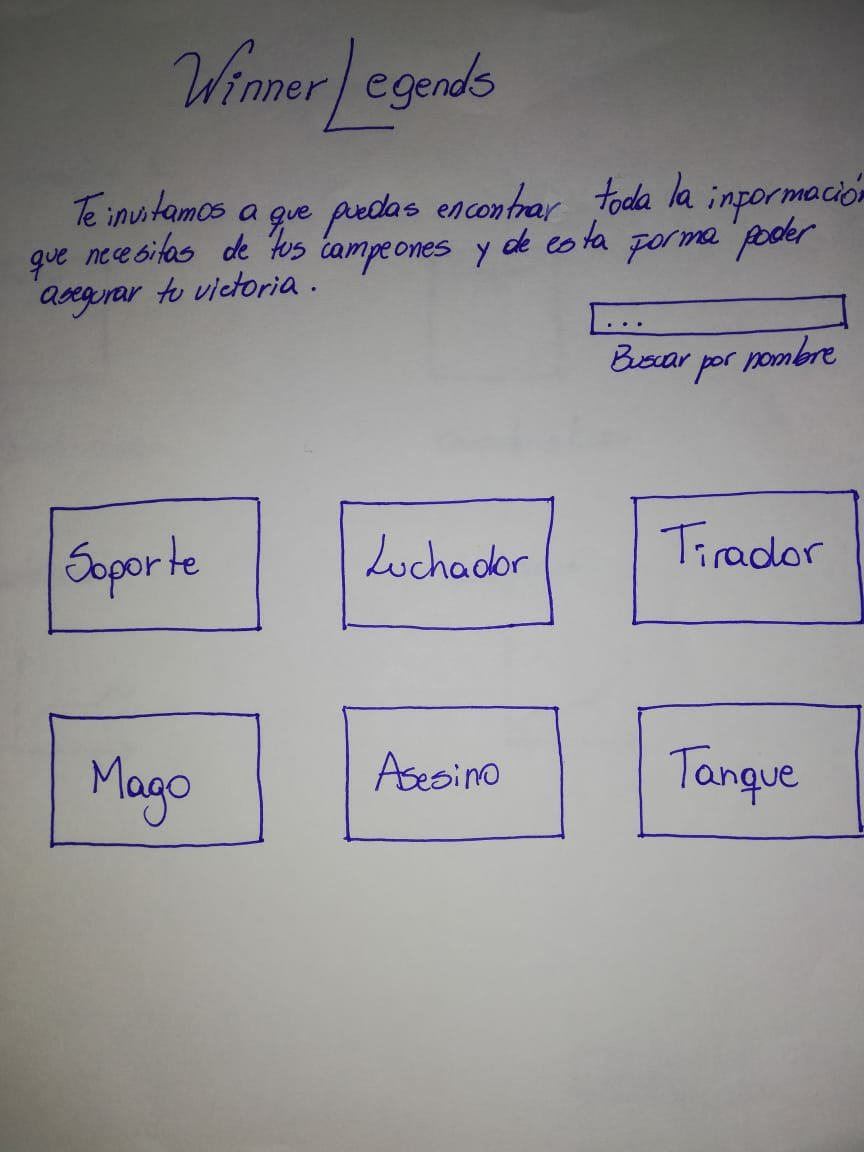 Winner Legends
Te invitamos a que puedas encontrar toda la información
que necesitas de tus campeones y de esta forma poder
asegurar tu victoria.
...
Buscar por nombre
Soporte Luchador Tirador
Mago Asesino Tanque